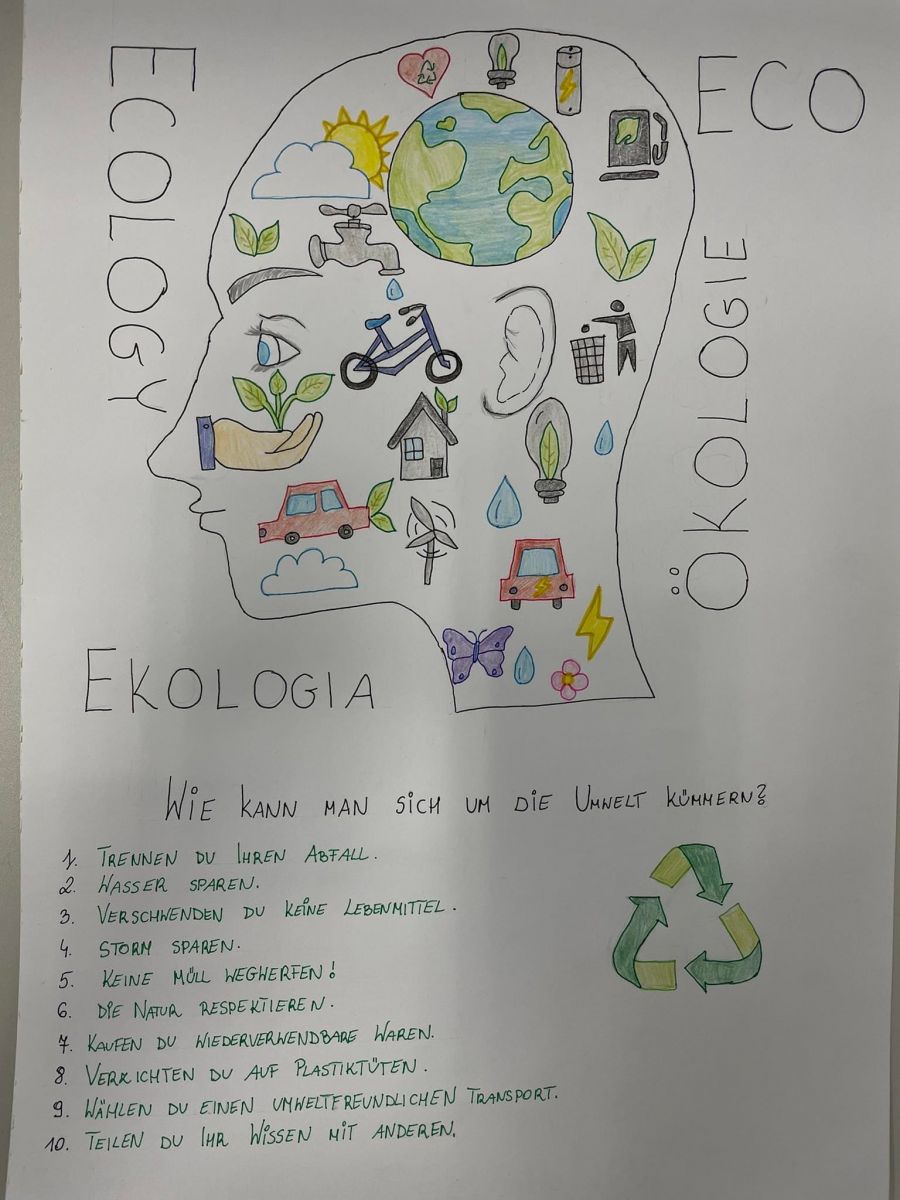 ECOLOGY
ECO
ÖKOLOGIE
EKOLOGIA
WIE KANN MAN SICH UM DIE UMWELT KÜMMERN?
1. TRENNEN DU IHREN ABFALL.
2. WASSER SPAREN.
3. VERSCHWENDEN DU KEINE LEBENMITTEL.
4. STORM SPAREN.
5. KEINE MÜLL WEGHERFEN!
6. DIE NATUR RESPEKTIEREN.
7. KAUFEN DU WIEDERVERWENDBARE WAREN.
8. VERZICHTEN DU AUF PLASTIKTÜTEN.
9. WÄHLEN DU EINEN UMWELTFREUNDLICHEN TRANSPORT.
10. TEILEN DU IHR WISSEN MIT ANDEREN.